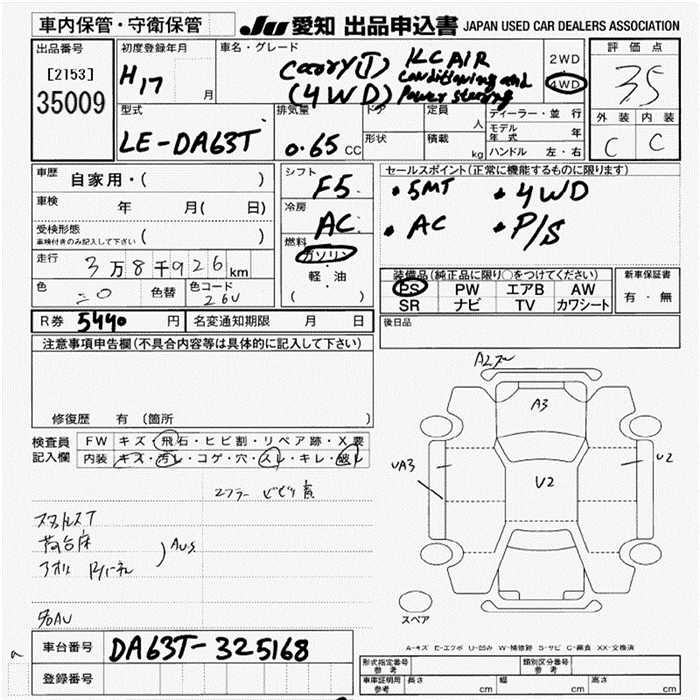 車内保管・守衛保管 JU 愛知 出品申込書 JAPAN USED CAR DEALERS ASSOCIATION
出品番号 初度登録年月 車名・グレード 2WD 評価点
[2153] H17 月 Carry(T) KC AIR Conditioning and 4WD 3.5
35009 (4WD) Power steering 外装 内装
型式 排気量 ドア 定員 人 ディーラー・並行 C C
LE-DA63T 0.65 CC 形状 積載 kg モデル年式 年
ハンドル 左・右
車歴 自家用・( ) シフト F5 セールスポイント(正常に機能するものに限ります)
車検 年 月( 日) 冷房 AC • 5MT • 4WD
受検形態 ( ) • AC • P/S
車検付きのみ記入して下さい
燃料 ガソリン
走行 3万8千926km 軽・油 装備品(純正品に限り○をつけてください) 新車保証書
色 色替 色コード 26U ( ) PS PW エアB AW 有・無
SR ナビ TV カワシート
R券 5440 円 名変通知期限 月 日 後日品
注意事項申告欄(不具合内容等は具体的に記入して下さい)
修復歴 有 (箇所 )
検査員 FW キズ・飛石・ヒビ割・リペア跡・X要
記入欄 内装 キズ・汚レ・コゲ・穴・スレ・キレ・破レ
A3
UA3 U2 U2
スペア
A-キズ E-エクボ U-凹み W-補修跡 S-サビ C-腐食 XX-交換済
車台番号 DA63T-325168
登録番号
形式指定番号 参考 類別区分番号 参考
車庫証明用 参考 長さ cm 幅 cm 高さ cm